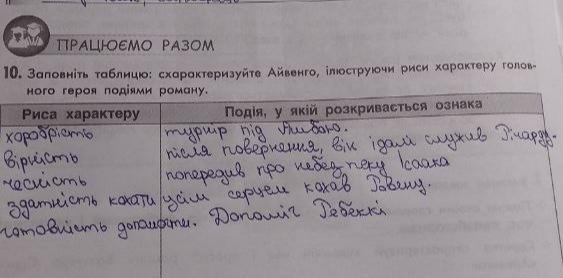 ПРАЦЮЄМО РАЗОМ
10. Заповніть таблицю: схарактеризуйте Айвенго, ілюструючи риси характеру голов-
ного героя подіями роману.
Риса характеру Подія, у якій розкривається ознака
хоробрість турнір під Ашбою.
вірність після повернення, він ідалі служив Річарду.
чесність попередив про небезпеку Ісаака
здатність кохати усім серцем кохав Ровену.
готовність допомогти. Допоміг Ребеккі